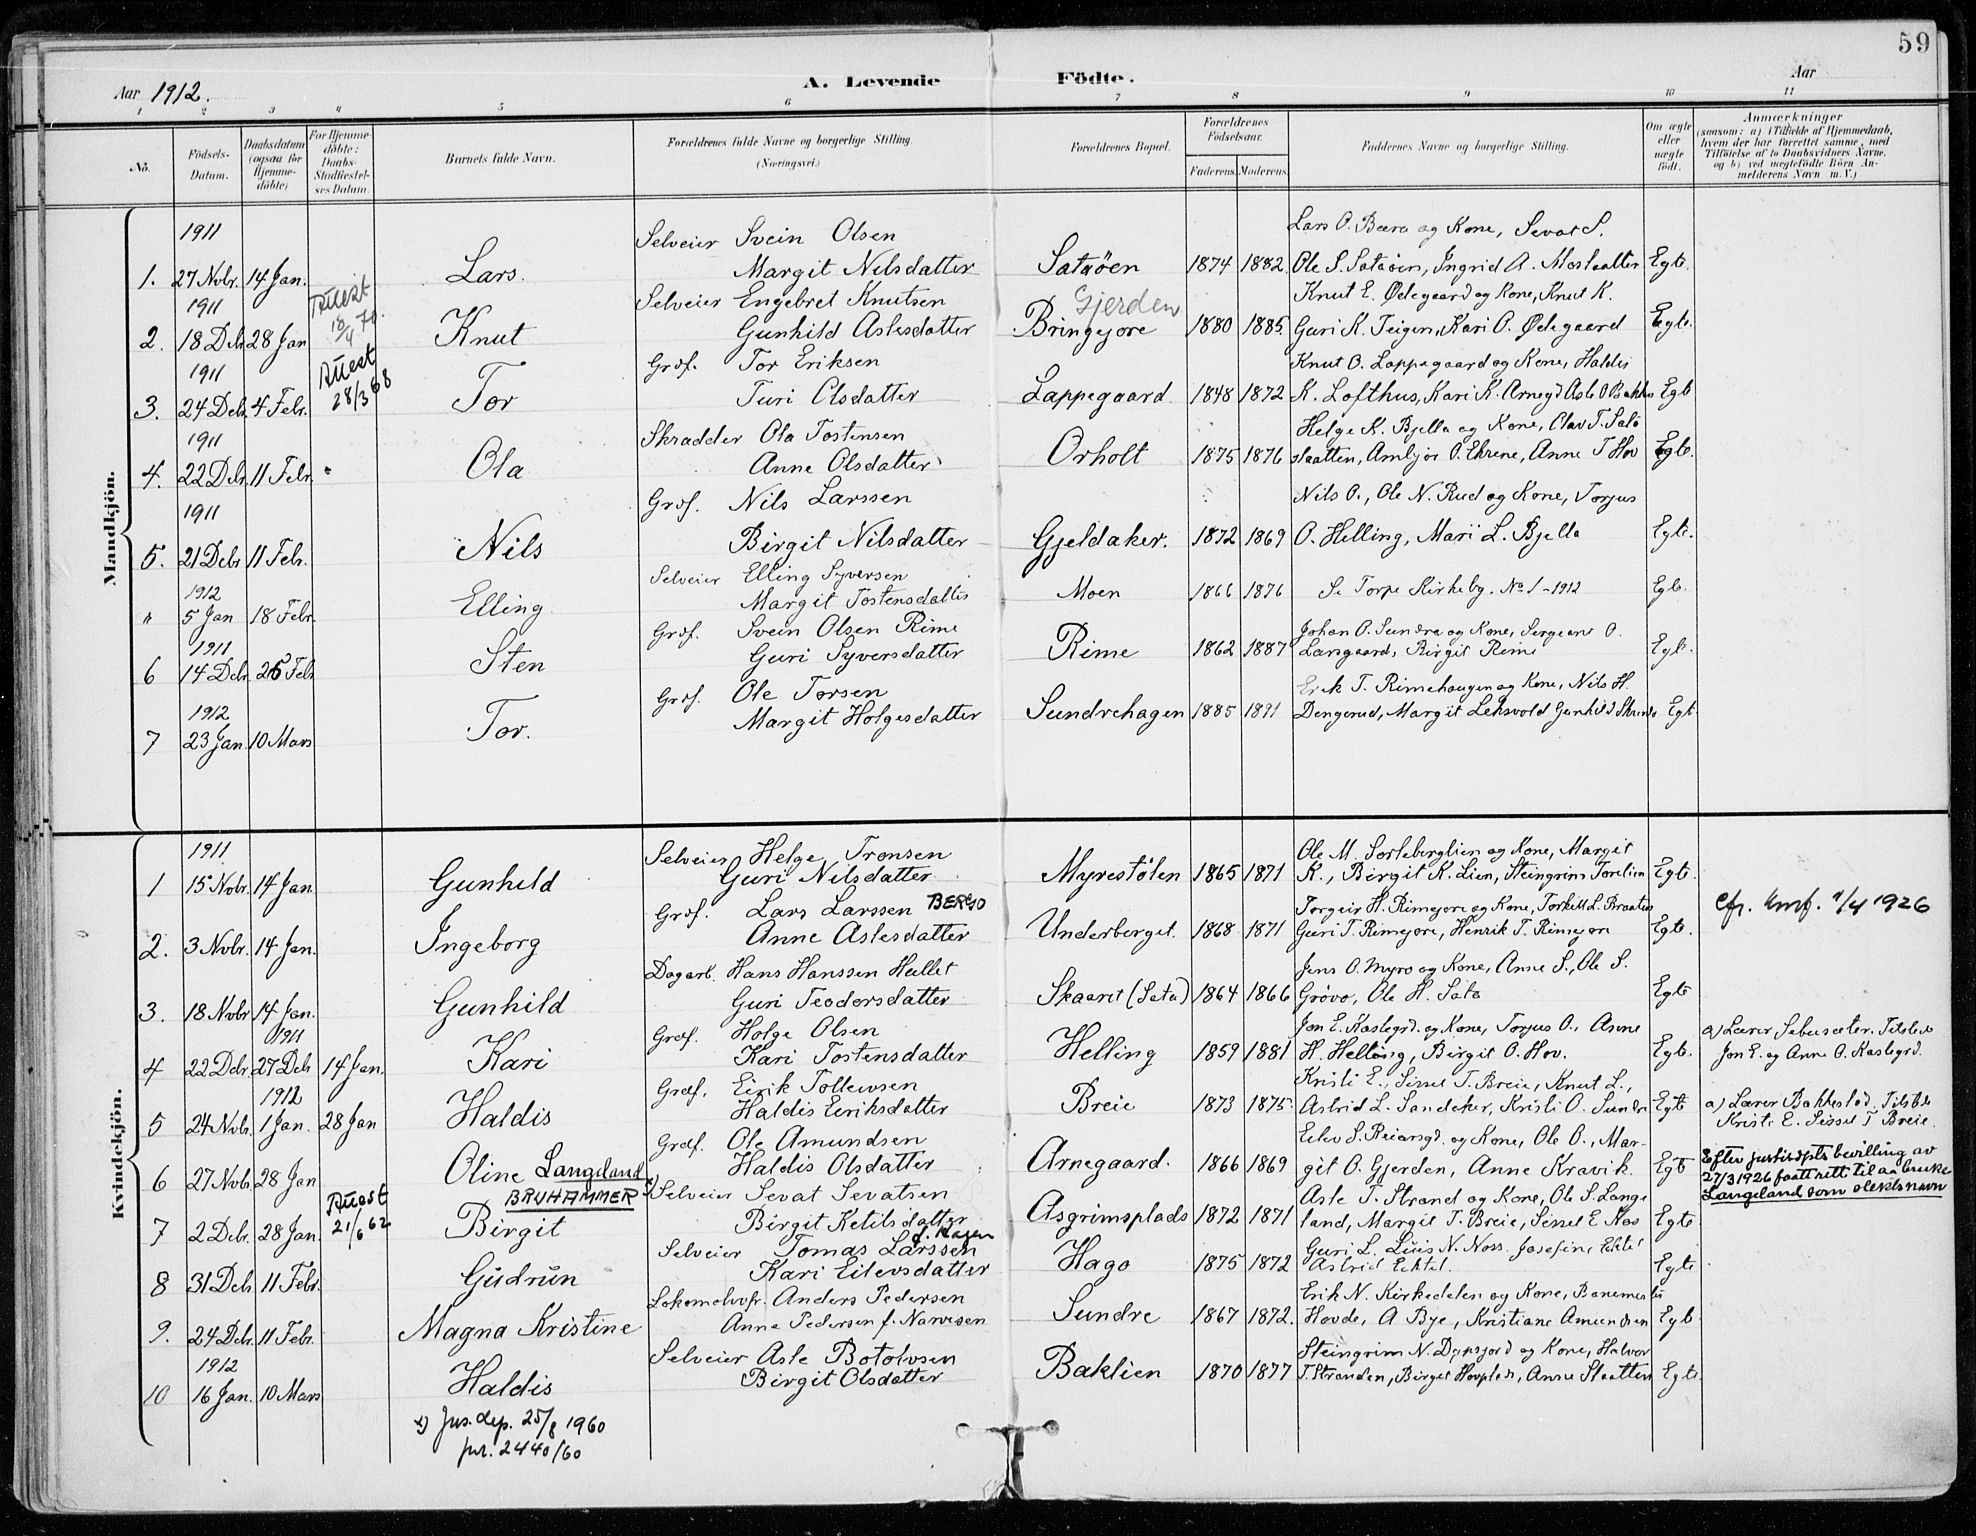 59
Aar 1912. A. Levende Födte. Aar
1 2 3 4 5 6 7 8 9 10 11
No. Födsels-Datum. Daabsdatum (ogsaa for Hjemmedöbte) For Hjemmedöbte: Daabs-Stadfæstelses Datum. Barnets fulde Navn. Forældrenes fulde Navne og borgerlige Stilling. (Næringsvei.) Forældrenes Bopæl. Forældrenes Födselsaar. Faderens. Moderens. Faddernes Navne og borgerlige Stilling. Om ægte eller uægte födt. Anmærkninger (saasom: a) i Tilfælde af Hjemmedaab, hvem der har forrettet samme, med Tilföielse af to Daabsvidners Navne, og b) ved uægtefödte Börn Anmelderens Navn m. V.)
Mandkjön.
1911 Selveier Svein Olsen Lars O. Bæra og Kone, Sevat S.
1. 27 Novbr. 14 Jan. Lars. Margit Nilsdatter Sataøen 1874 1882 Ole S. Sataøen, Ingrid A. Moslaatter Egte.
1911 Attest 18/4 Selveier Engebret Knutsen Gjerden Knut E. Ødegaard og Kone, Knut K.
2. 18 Debr 28 Jan Knut Gunhild Aslesdatter Bringejore 1880 1885. Guri K. Teigen, Kari O. Ødegaard Egte.
1911 Attest 28/3 68 Grdf. Tor Eriksen Knut O. Lappegaard og Kone, Haldis
3. 24 Debr. 4 Febr. Tor Turi Olsdatter Lappegaard 1848 1872 K. Lofthus, Kari K. Arnegd Asle O Bakken Egte
1911 Skrædder Ola Tostensen Helge K. Bjella og Kone, Olav T. Satø
4. 22 Debr. 11 Febr. Ola Anne Olsdatter Orholt 1875 1876 slaatten, Ambjør O. Ekrene, Anne T Hov Egte.
1911 Grdf. Nils Larssen Nils O., Ole N. Rud og Kone, Torjus
5. 21 Debr 11 Febr. Nils Birgit Nilsdatter Gjeldaker. 1872 1869 O. Helling, Mari L. Bjella Egte.
1912 Selveier Elling Syversen
" 5 Jan 18 Febr. Elling Margit Tostensdatter Moen 1866 1876 Se Torpe Kirkeby. No 1 - 1912 Egte.
1911 Grdf. Svein Olsen Rime Johan O. Sundre og Kone, Sergeant O.
6 14 Debr. 25 Febr Sten Guri Syversdatter Rime 1862 1887 Langaard, Birgit Rime Egte.
1912 Grdf. Ole Torsen Erik T. Rimehaugen og Kone, Nils H.
7 23 Jan. 10 Mars Tor. Margit Holgesdatter Sundrehagen 1885 1891 Dengerud, Margit Leksvold Gunhild Egte
Kvindekjön.
1911 Selveier Helge Tronsen Ole M. Sorteberglien og Kone, Margit
1 15 Novbr. 14 Jan. Gunhild Guri Nilsdatter Myrestølen 1865 1871 K., Birgit K. Lien, Steingrim Torelien Egte.
Grdf. Lars Larssen BERGO Torgeir H. Rimejore og Kone, Torkill L. Braaten cfr. kmf. 1/4 1926
2. 3 Novbr. 14 Jan. Ingeborg Anne Aslesdatter Underberget. 1868 1871 Guri T. Rimejore, Henrik T. Rimejore Egte.
Dagarb. Hans Hanssen Hallet Jens O. Myro og Kone, Anne S., Ole S.
3. 18 Novbr 14 Jan. Gunhild Guri Teodorsdatter Skaaret (Sata) 1864 1866 Grøvo, Ole H. Sata Egte
1911 Grdf. Holge Olsen Jon E. Kaslegrd. og Kone, Torjus O., Anne a) Lærer Sebusæter. Tilstede
4 22 Debr. 27 Debr 14 Jan. Kari Kari Tostensdatter Helling 1859 1881 H. Helling, Birgit O. Hov. Egte. Jon E. og Anne O. Kaslegrd.
1912 Grdf. Eirik Tollevsen Kristi E., Sissel T. Breie, Knut L., a) Lærer Bakkestad, Tilstede
5 24 Novbr. 1 Jan. 28 Jan Haldis Haldis Eiriksdatter Breie 1873 1875. Astrid L. Sandaker, Kristi O. Sundre Egte Kristi E. Sissel T Breie.
Grdf. Ole Amundsen Eilev S. Reiarsgd. og Kone, Ole O., Mar- Efter justisdpts bevilling av
6 27 Novbr. 28 Jan Oline Langeland Haldis Olsdatter Arnegaard. 1866 1869 git O. Gjerden, Anne Kravik. Egte 27/3 1926 faatt rett til aa bruke
Attest 21/6 62 BRUHAMMER x) Selveier Sevat Sevatsen Asle T. Strand og Kone, Ole S. Lange Langeland som slektsnavn
7 2 Debr. 28 Jan. Birgit Birgit Ketilsdatter Asgrimsplads 1872 1871 land, Margit T. Breie, Sissel E Nos Egte
Selveier Tomas Larssen f. Hagen Guri L. Luis N. Noss. Josefine Ecktel
8 31 Debr. 11 Febr. Gudrun Kari Eilevsdatter Hago 1875 1872 Astrid Ecktel. Egte
Lokomotivfr. Anders Pedersen Erik N. Kirkedelen og Kone, Banemester
9. 24 Debr. 11 Febr. Magna Kristine Anna Pedersen f. Narvesen Sundre 1867 1872. Hovde, A Bye, Kristiane Amundsen Egte.
1912 Selveier Asle Botolvsen Steingrim N. Dypsjord og Kone, Halvor
10 16 Jan. 10 Mars Haldis Birgit Olsdatter Baklien 1870 1877 T. Stranden, Birget Hovplads, Anne Slaatten Egte.
x) Jus. dep. 25/8 1960
jnr. 2440/60